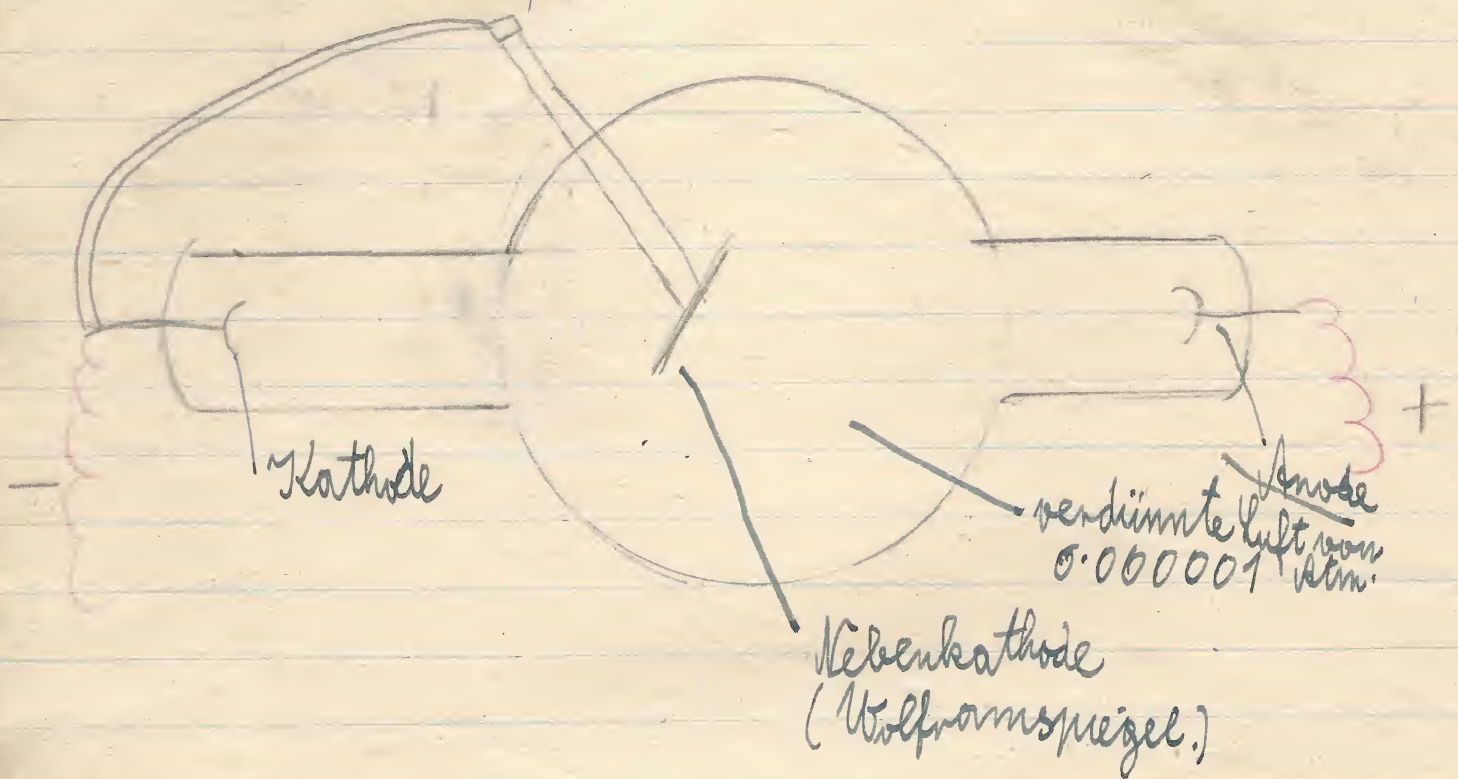 −
Kathode
+
Anode
verdünnte Luft von
0.000001 Atm.
Nebenkathode
(Wolframspiegel.)